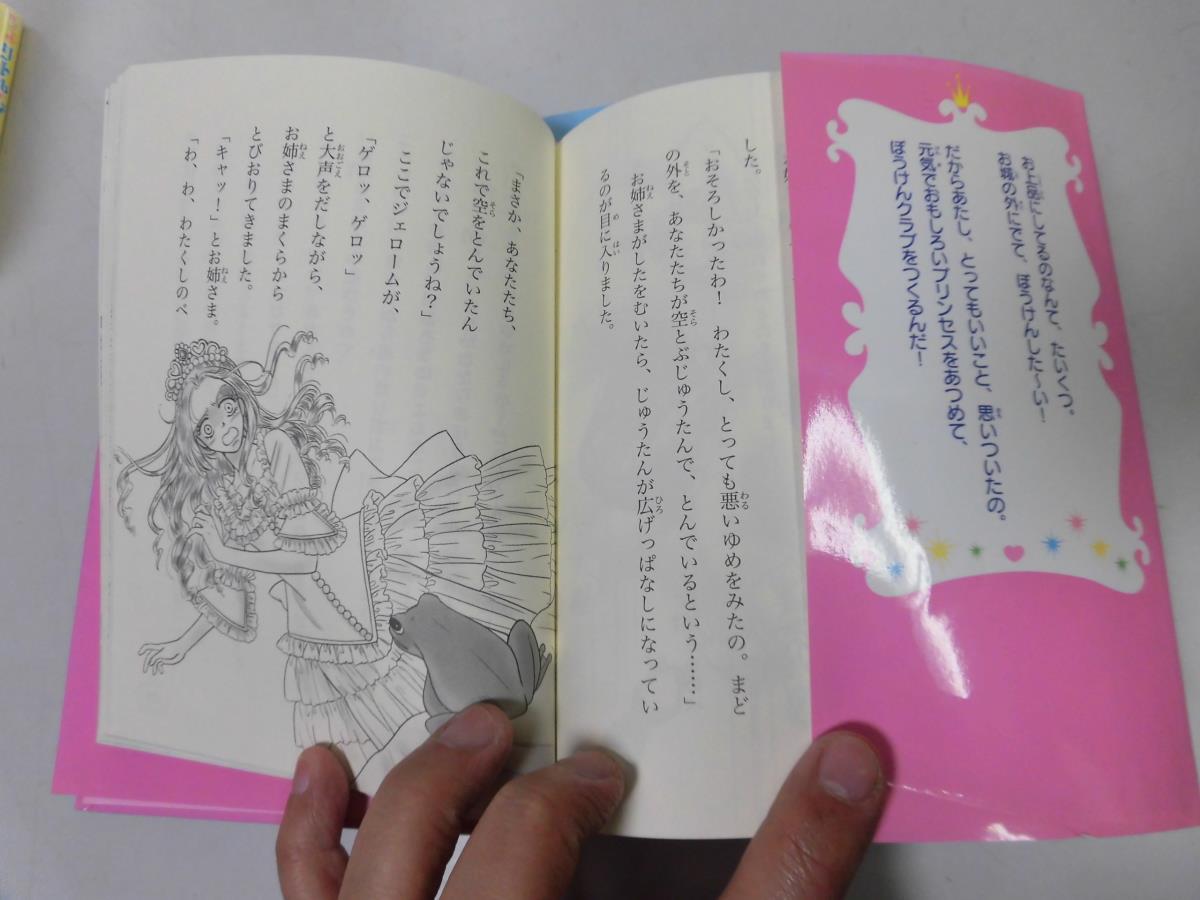 お上品にしてるのなんて、たいくつ。
お城の外にでて、ぼうけんした〜い！
だからあたし、とってもいいこと、思いついたの。
元気でおもしろいプリンセスをあつめて、
ぼうけんクラブをつくるんだ！
した。
「おそろしかったわ！　わたくし、とっても悪いゆめをみたの。まど
の外を、あなたたちが空とぶじゅうたんで、とんでいるという……」
お姉さまがしたをむいたら、じゅうたんが広げっぱなしになってい
るのが目に入りました。
「まさか、あなたたち、
これで空をとんでいたん
じゃないでしょうね？」
ここでジェロームが、
「ゲロッ、ゲロッ」
と大声をだしながら、
お姉さまのまくらから
とびおりてきました。
「キャッ！」とお姉さま。
「わ、わ、わたくしのベ